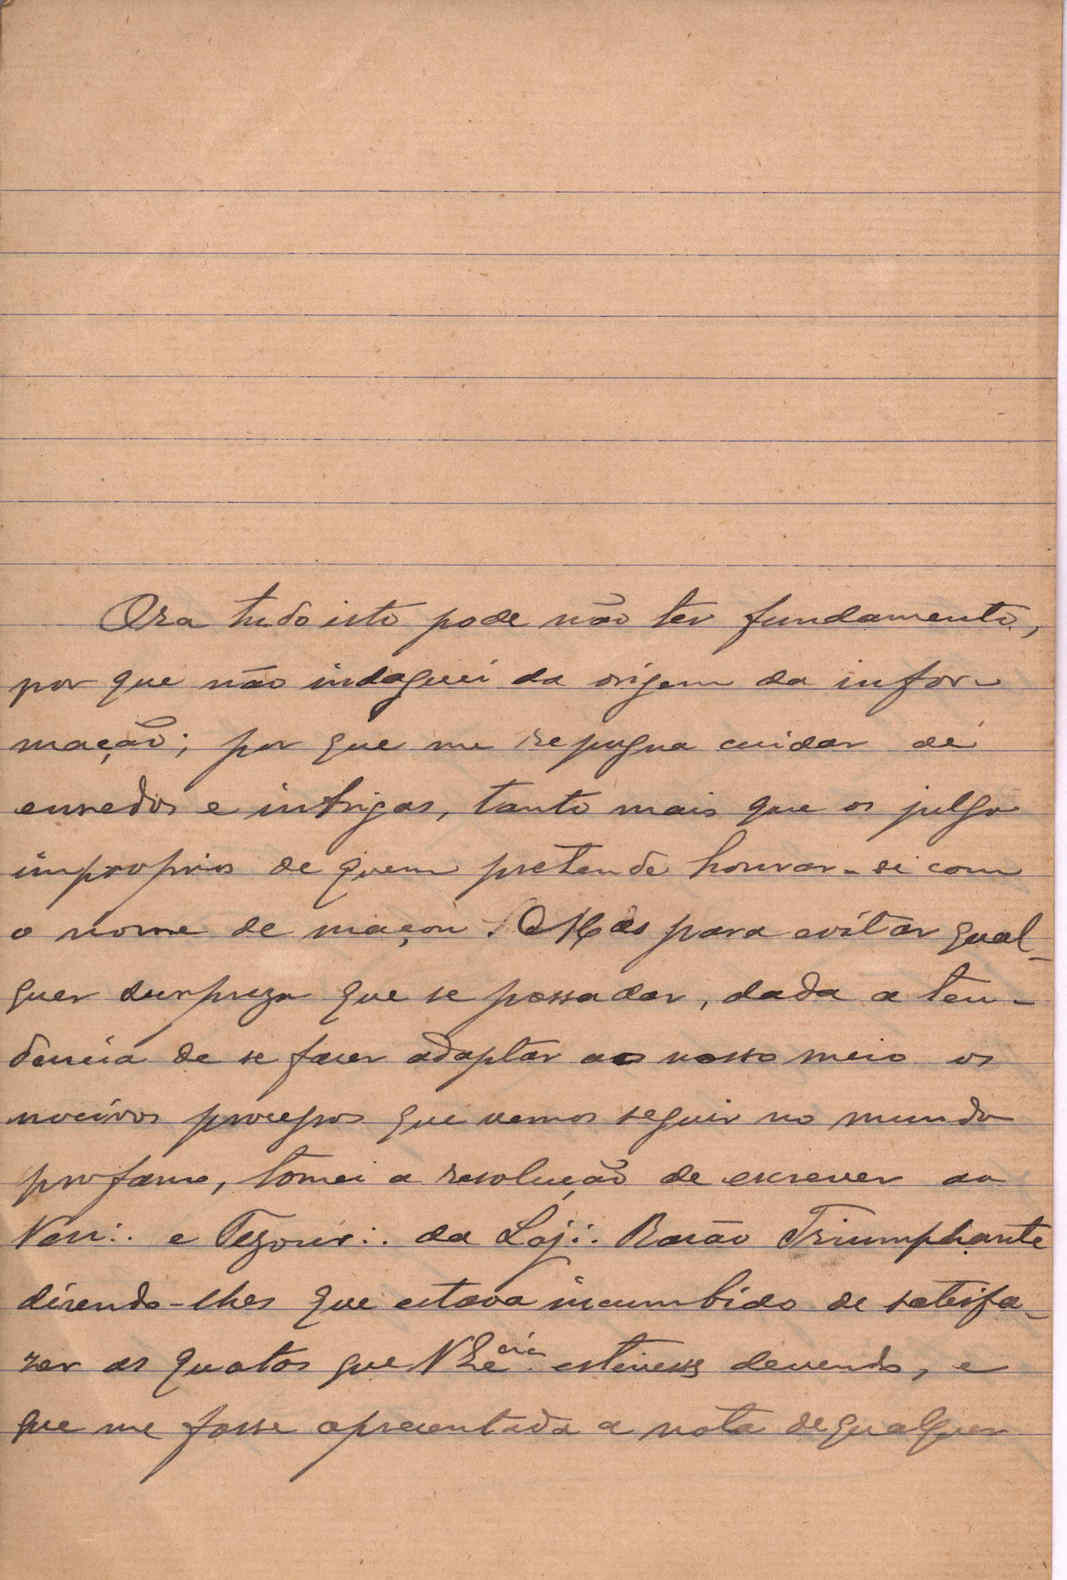 Ora tudo isto pode não ter fundamento,
por que não indaguei da origem da infor-
mação; por que me repugna cuidar de
enredos e intrigas, tanto mais que os julgo
improprios de quem pretende honrar-se com
o nome de maçon. Mas para evitar qual-
quer surpreza que se possa dar, dada a ten-
dencia de se fazer adaptar ao nosso meio os
nocivos processos que vemos seguir no mundo
profano, tomei a resolução de escrever ao
Ven∴ e Tezour∴ da Loj∴ Razão Triumphante
dizendo-lhes que estava incumbido de satisfa-
zer as quotas que V Exᶜⁱᵃ estivesse devendo, e
que me fosse apresentada a nota de qualquer